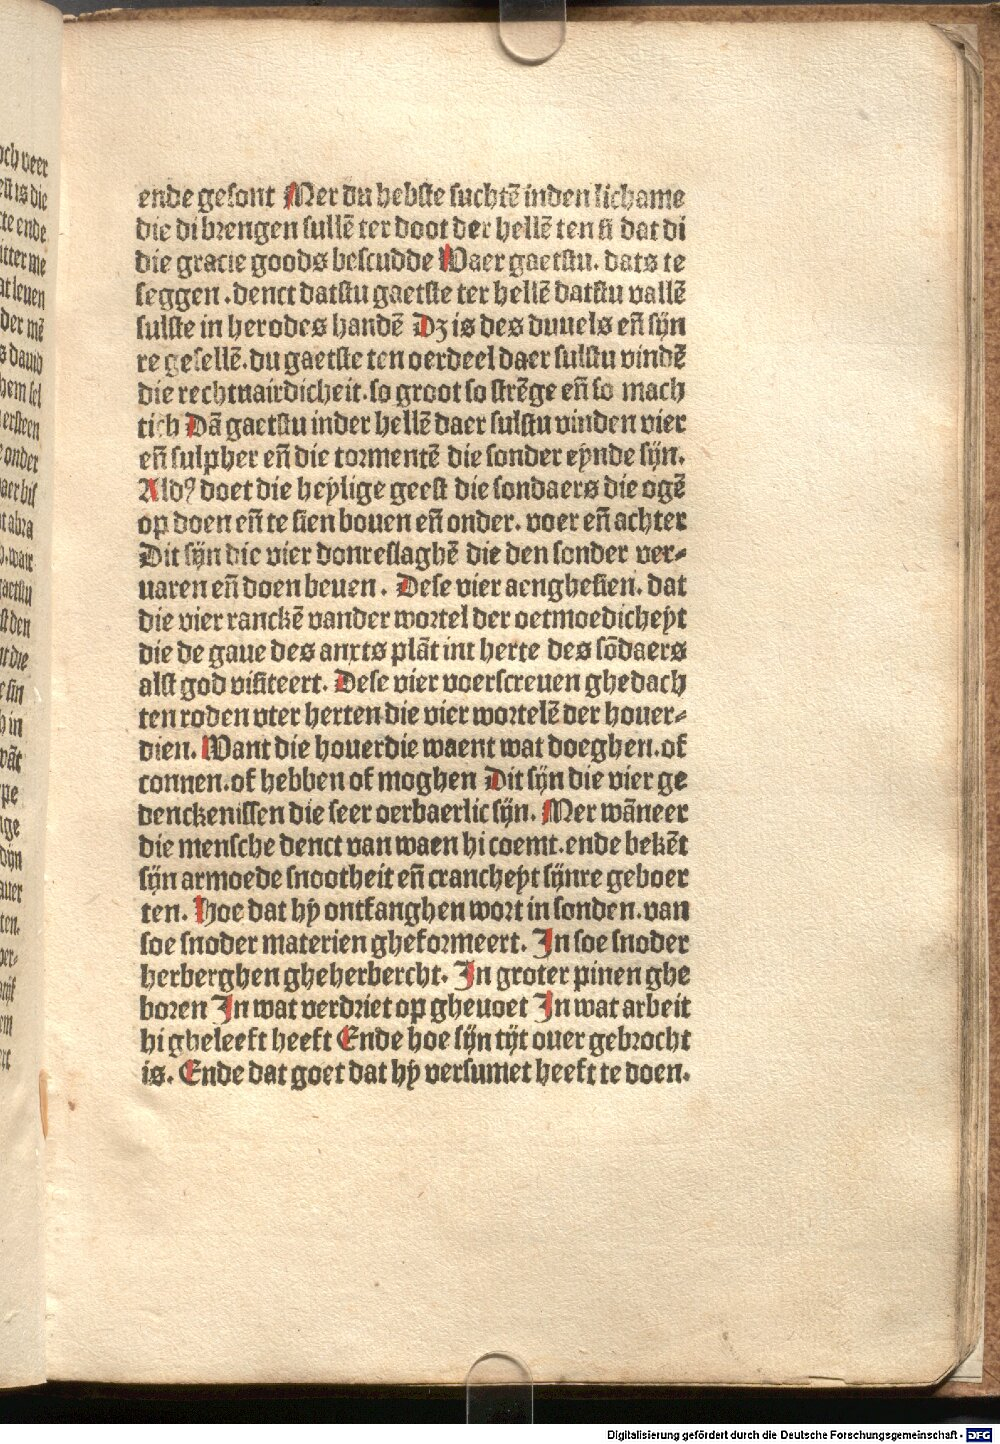 ende gesont Mer du hebste suchtē inden lichame
die di brengen sullē ter doot der hellē ten si dat di
die gracie goods bescudde Waer gaetstu. dats te
seggen .denct datstu gaetste ter hellē datstu vallē
sulste in herodes handē Dʒ is des duuels eñ sijn
re gesellē. du gaetste ten oerdeel daer sulstu vindē
die rechtuairdicheit. so groot so strēge eñ so mach
tich Dā gaetstu inder hellē daer sulstu vinden vier
eñ sulpher eñ die tormentē die sonder eynde sijn.
Aldꝰ doet die heylige geest die sondaers die ogē
op doen eñ te sien bouen eñ onder. voer eñ achter
Dit sijn die vier donreslaghē die den sonder ver⸗
uaren eñ doen beuen. Dese vier aenghesien. dat
die vier ranckē vander wortel der oetmoedicheyt
die de gaue des anxts plāt int herte des sōdaers
alst god visiteert. Dese vier voerscreuen ghedach
ten roden vter herten die vier wortelē der houer⸗
dien. Want die houerdie waent wat doeghen. of
connen. of hebben of moghen Dit sijn die vier ge
denckenissen die seer oerbaerlic sijn. Mer wāneer
die mensche denct van waen hi coemt. ende bekēt
sijn armoede snootheit eñ crancheyt sijnre geboer
ten. Hoe dat hy ontfanghen wort in sonden. van
soe snoder materien gheformeert. In soe snoder
herberghen gheherbercht. In groter pinen ghe
boren In wat verdriet op gheuoet In wat arbeit
hi gheleeft heeft Ende hoe sijn tijt ouer gebrocht
is. Ende dat goet dat hy versumet heeft te doen.
Digitalisierung gefördert durch die Deutsche Forschungsgemeinschaft - DFG